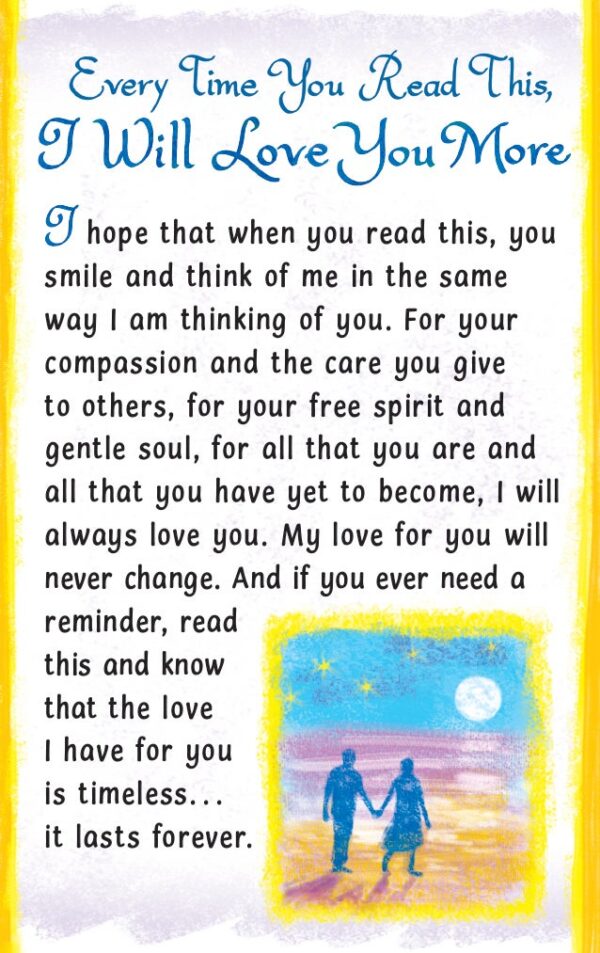 Every Time You Read This,
I Will Love You More
I hope that when you read this, you
smile and think of me in the same
way I am thinking of you. For your
compassion and the care you give
to others, for your free spirit and
gentle soul, for all that you are and
all that you have yet to become, I will
always love you. My love for you will
never change. And if you ever need a
reminder, read
this and know
that the love
I have for you
is timeless...
it lasts forever.